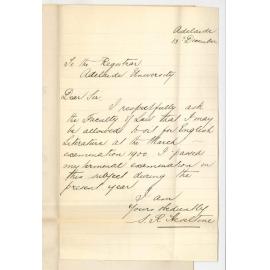 Adelaide
13th December
To the Registrar
Adelaide University
Dear Sir
I respectfully ask
the Faculty of Law that I may
be allowed to sit for English
Literature at the March
examination 1900. I passed
my terminal examination in
this subject during the
present year
I am
Yours obediently
S. R.